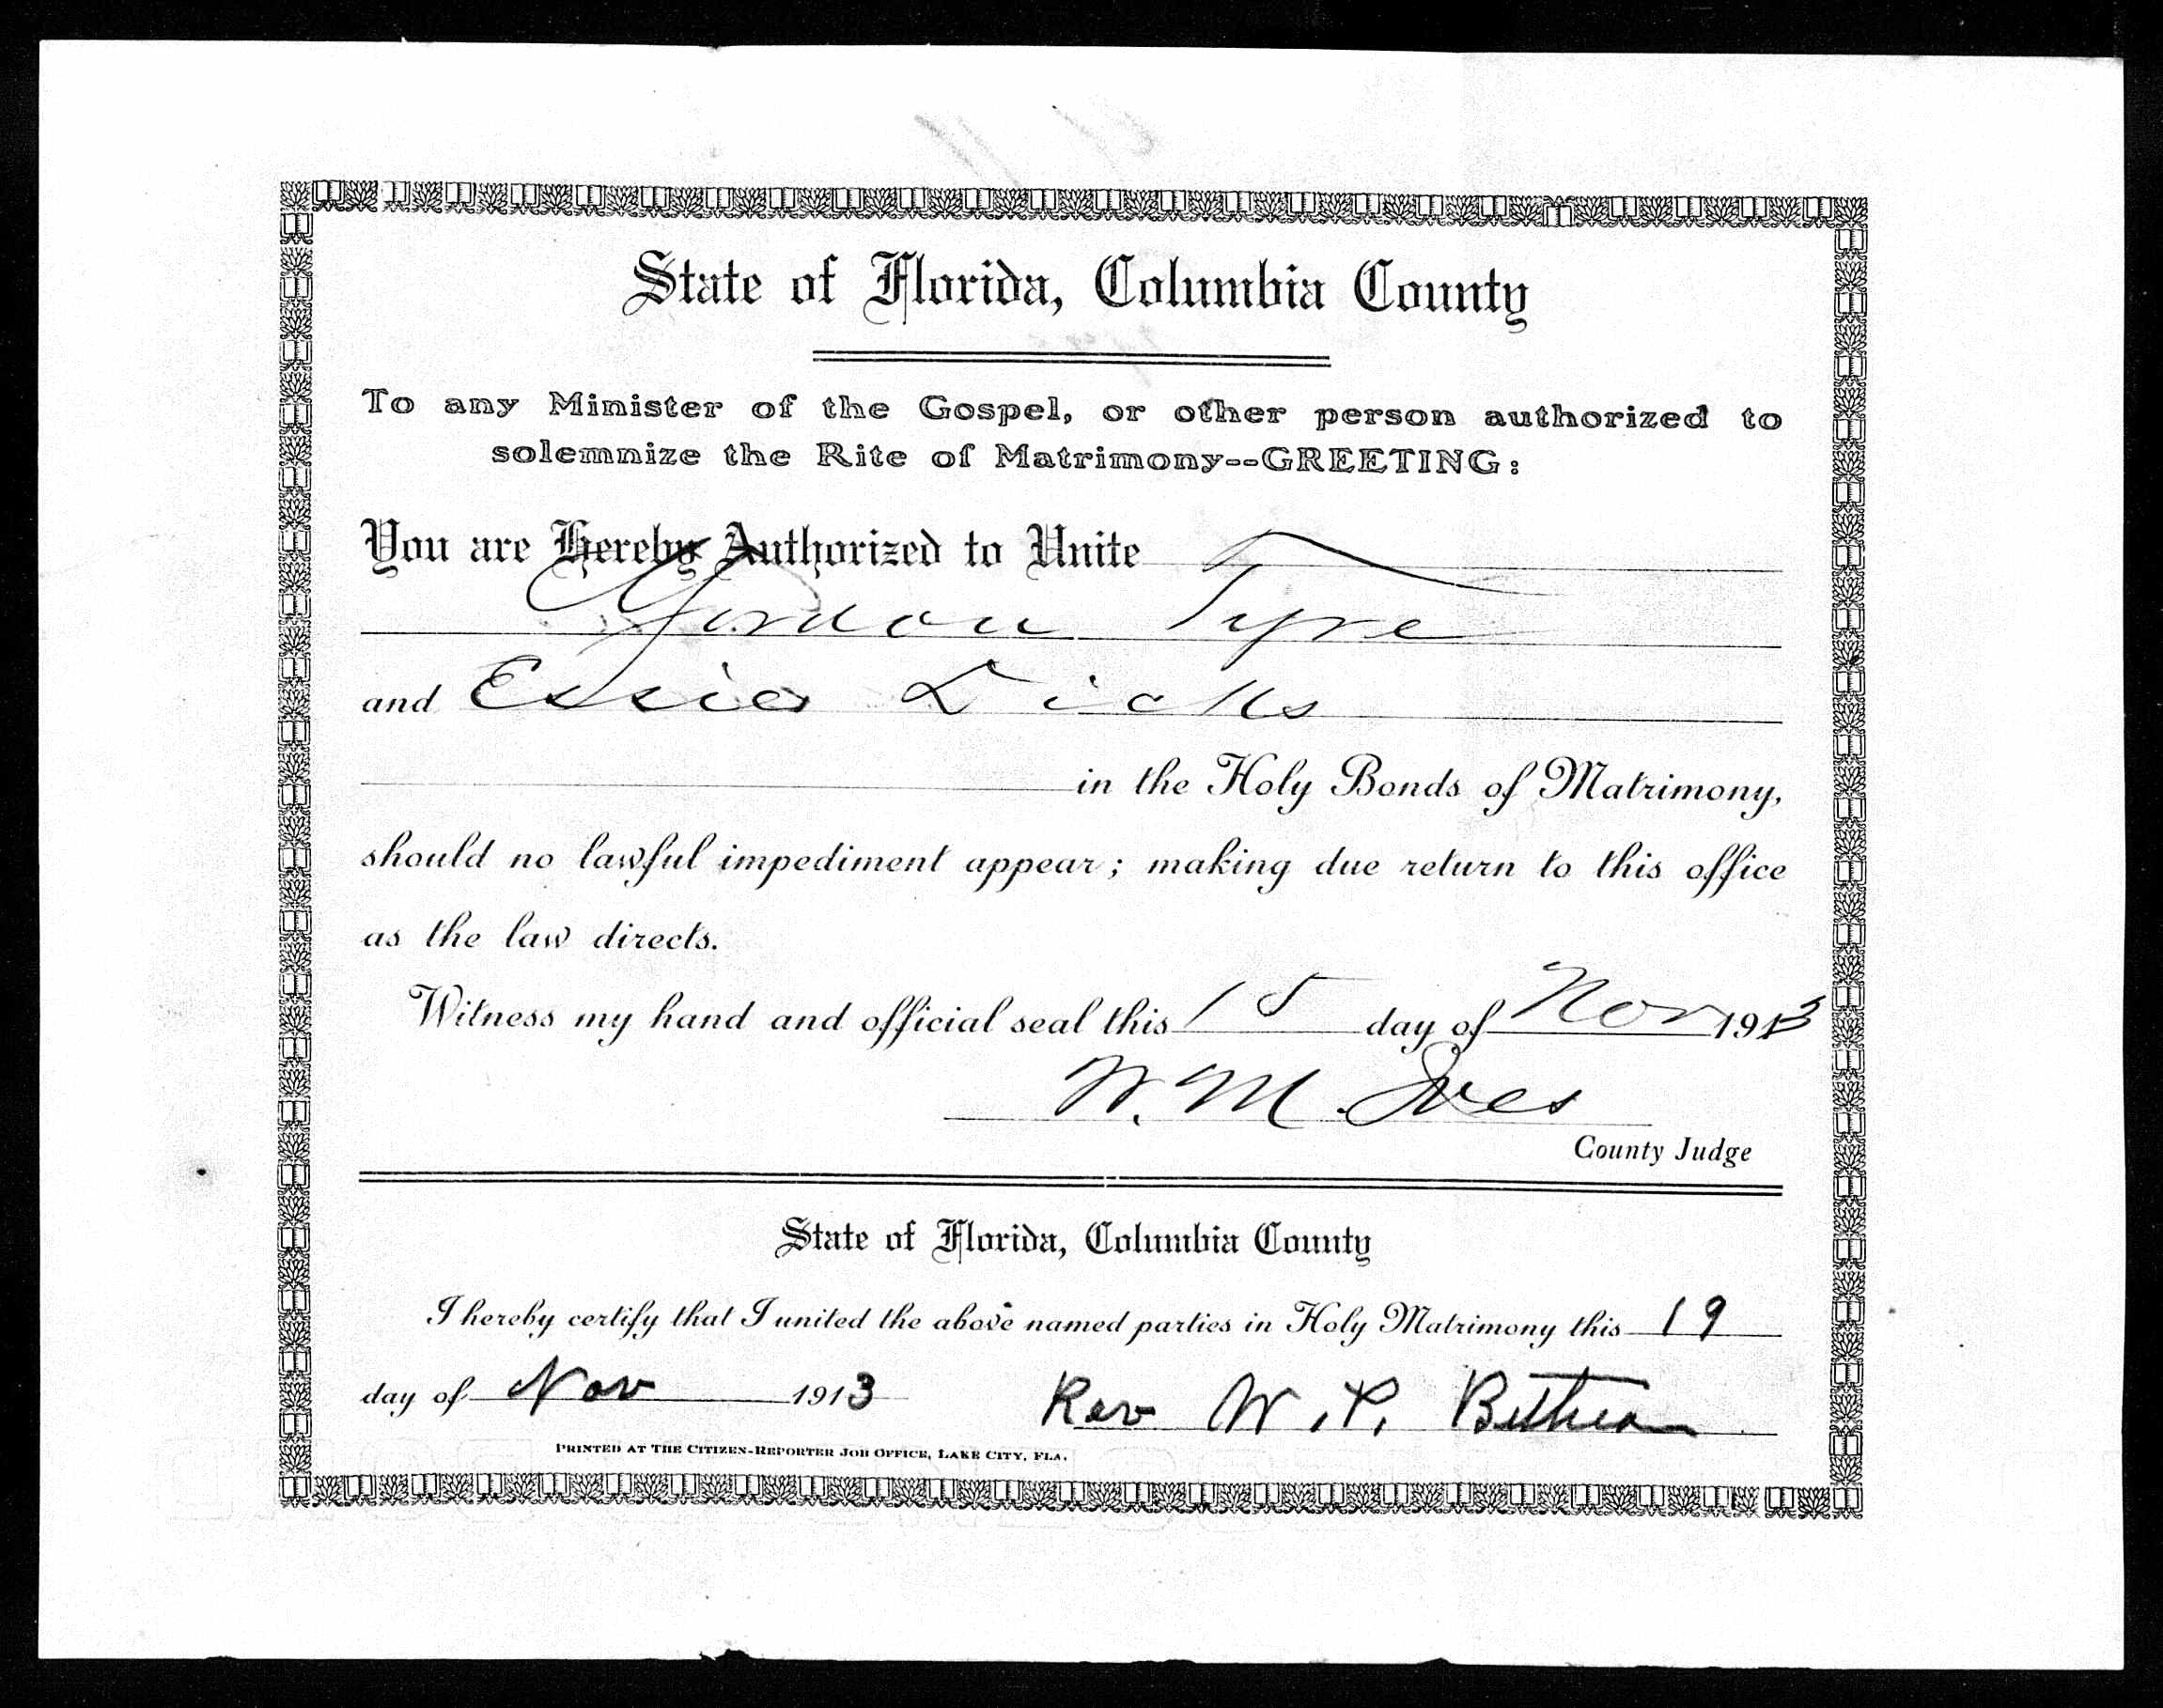 State of Florida, Columbia County
To any Minister of the Gospel, or other person authorized to
solemnize the Rite of Matrimony--GREETING:
You are Hereby Authorized to Unite
Gordon Tyre
and Essie Dicks
in the Holy Bonds of Matrimony,
should no lawful impediment appear; making due return to this office
as the law directs.
Witness my hand and official seal this 15 day of Nov 1913
W. M. Ives
County Judge
State of Florida, Columbia County
I hereby certify that I united the above named parties in Holy Matrimony this 19
day of Nov 1913 Rev W. P.
PRINTED AT THE CITIZEN-REPORTER JOB OFFICE, LAKE CITY, FLA.